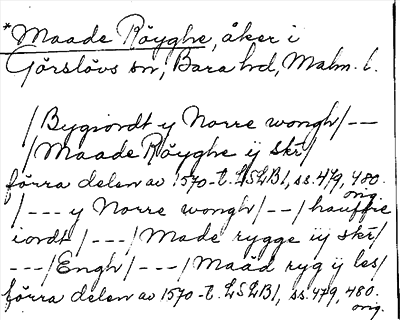 *Maade Röyghe, åker i
Görslövs sn, Bara hd, Malm. l.
/Bygiordt y Norre wongh/--
/Maade Röyghe ij skr/
förra delen av 1570-t. LSLB1, ss. 479, 480.
orig.
/--- y Norre wongh/--/hauffue
iordt/---/Made rygge iij skr/
---/Engh/---/Maad ryg ij les/
förra delen av 1570-t. LSLB1, ss. 479, 480.
orig.